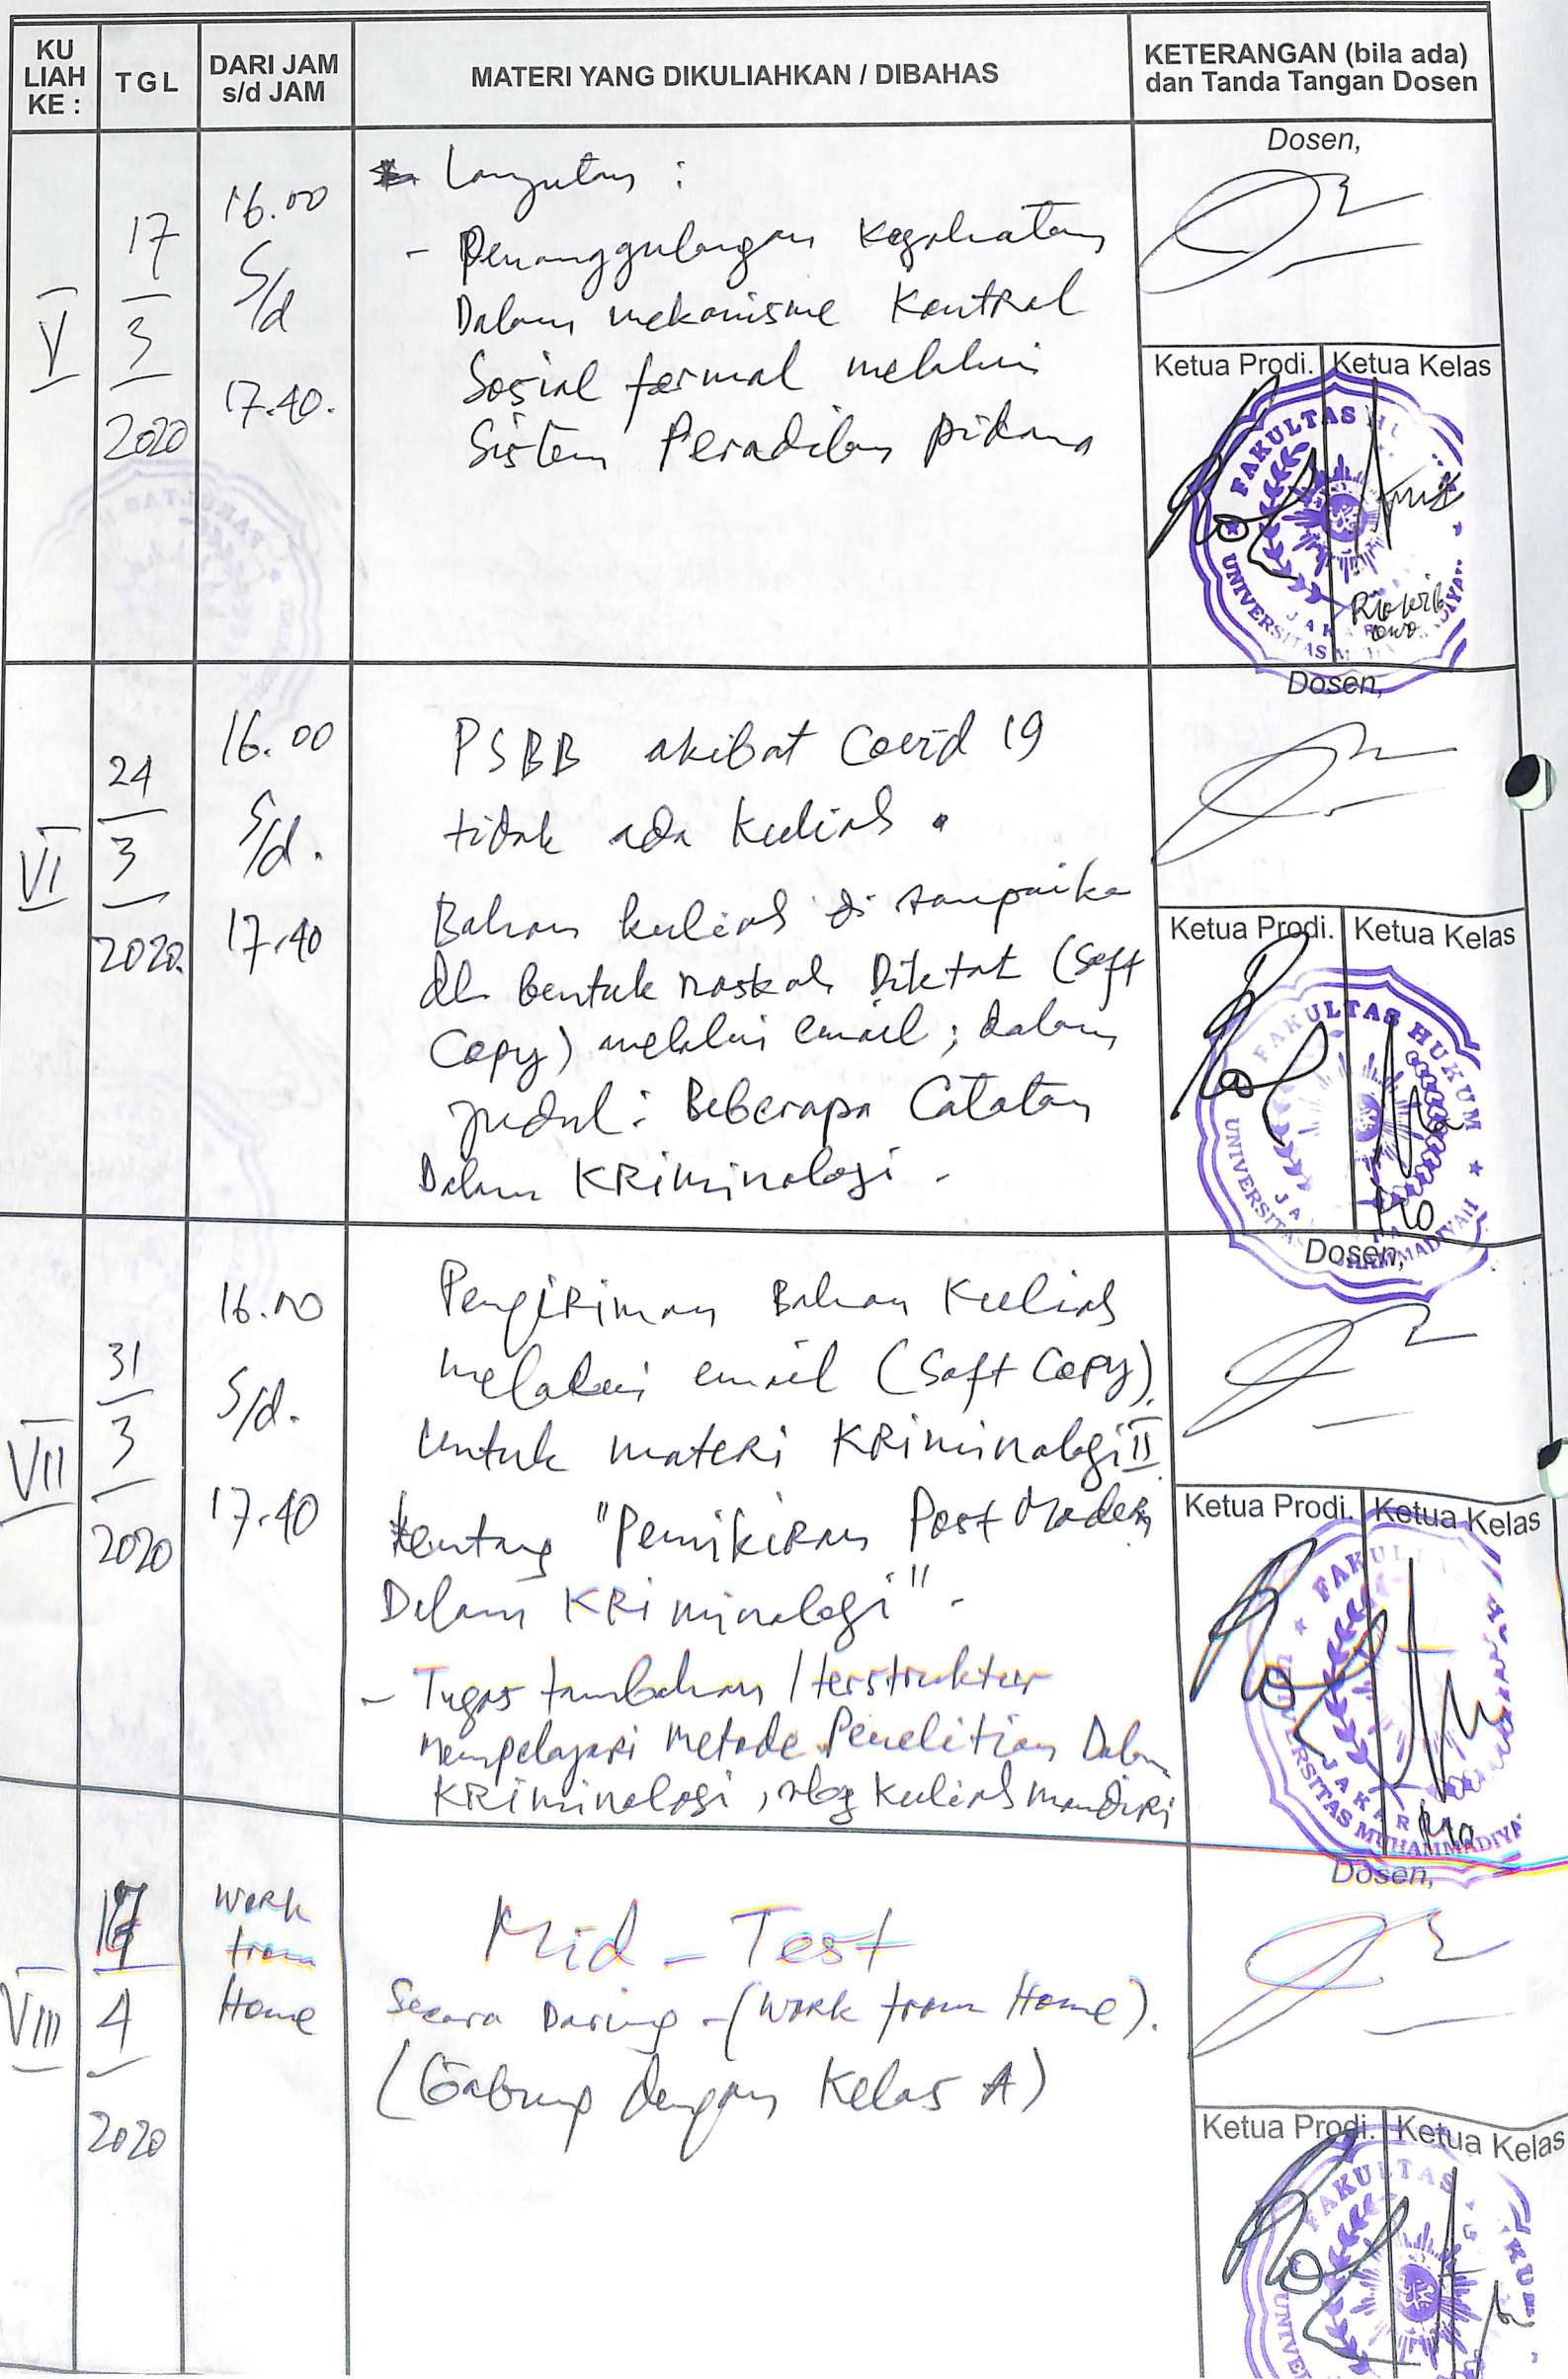 KU LIAH KE :
TGL
DARI JAM s/d JAM
MATERI YANG DIKULIAHKAN / DIBAHAS
KETERANGAN (bila ada) dan Tanda Tangan Dosen
V
17
3
2020
16.00
s/d
17.40.
Lanjutan :
- Penanggulangan Kejahatan
Dalam mekanisme Kontrol
Sosial formal melalui
Sistem Peradilan pidana
Dosen,
Ketua Prodi.
Ketua Kelas
FAKULTAS HU
UNIVERSITAS M
VI
24
3
2020.
16.00
s/d.
17.40
PSBB akibat Covid 19
tidak ada kuliah .
Bahan kuliah di sampaika
dlm bentuk naskah Diktat (Soft
Copy) melalui email ; dalam
judul : Beberapa Catatan
Dalam KRiminologi -
Dosen,
Ketua Prodi.
Ketua Kelas
FAKULTAS HUKUM
VII
31
3
2020
16.00
s/d.
17.40
PengiRiman Bahan Kuliah
melalui email (Soft Copy).
Untuk mateRi KRiminologi II
tentang "PemikiRan Post ModeRn
Dalam KRiminologi" -
- Tugas tambahan / terstruktur
mempelajaRi Metode Penelitian Dalam
KRiminologi, sbg kuliah mandiRi
Dosen,
Ketua Prodi.
Ketua Kelas
UNIVERSITAS MUHAMMADIYA
JAKAR
VIII
4
2020
WoRk
from
Home
Mid - Test
Secara Daring - (WoRk from Home).
(Gabung dengan Kelas A)
Dosen,
Ketua Prodi.
Ketua Kelas
FAKULTAS